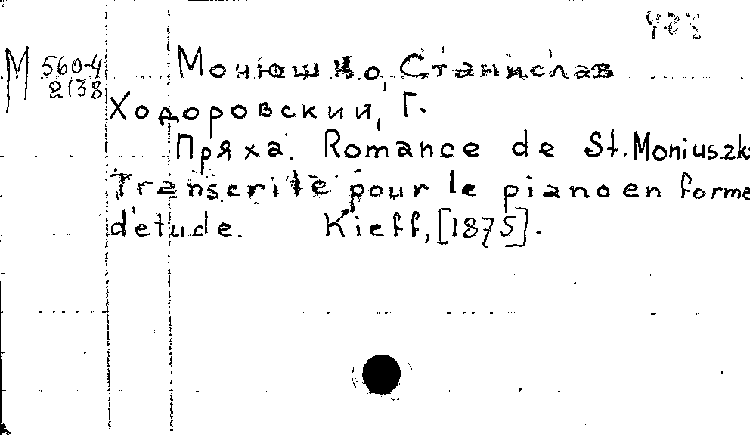 М 560-4
2138
Монюшко, Станислав
Ходоровский, Г.
Пряха. Romance de St. Moniuszk
Transcrite pour le piano en forme
d'etude. Kieff, [1875].